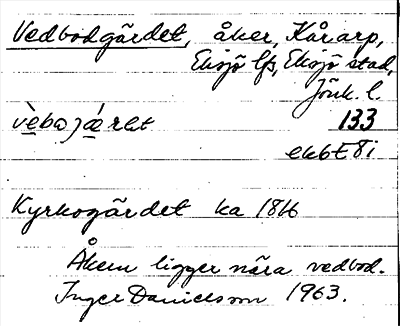 Vedbodgärdet, åker, Kårarp,
Eksjö lfs, Eksjö stad,
Jönk. l.
vèbojǽret 133
ekbt 8i
Kyrkogärdet ka 1816
Åkern ligger nära vedbod.
Inger Danielsson 1963.